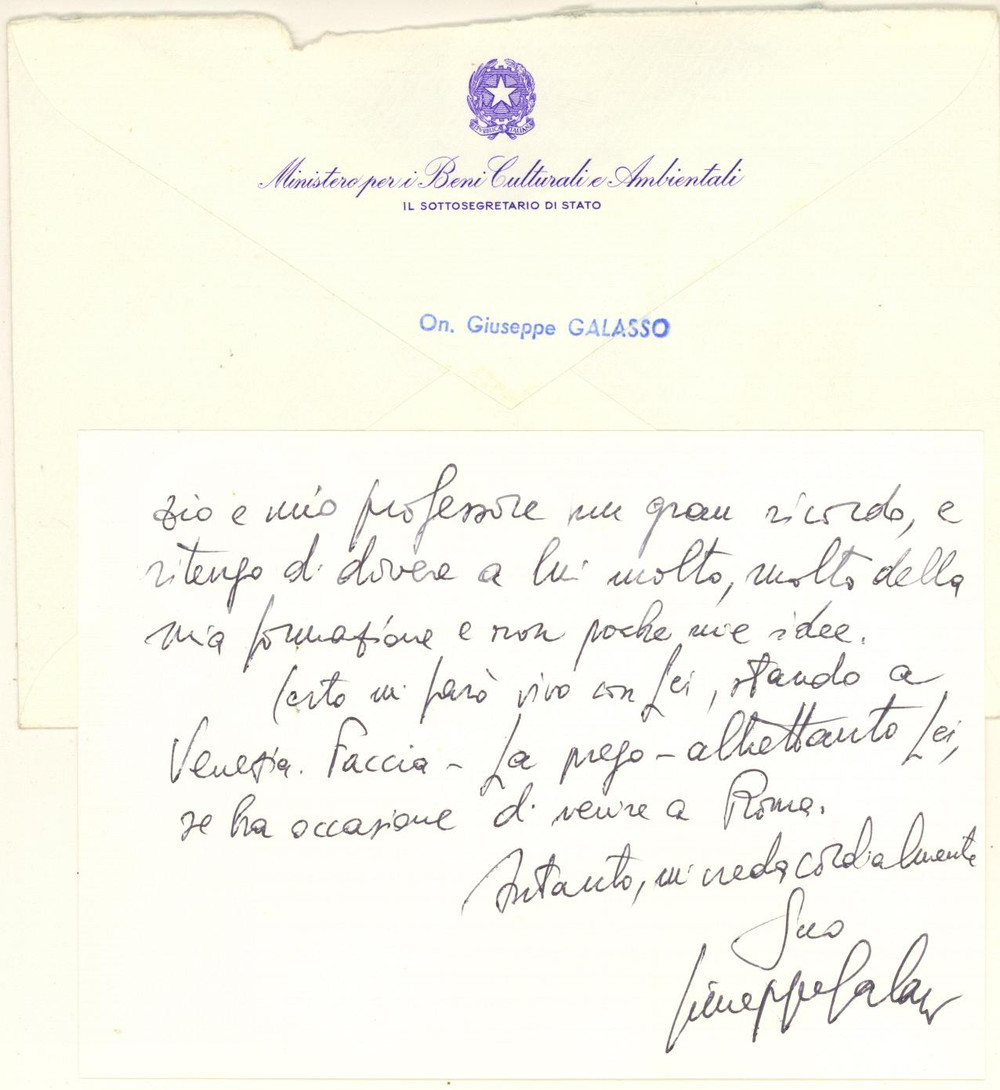 REPUBBLICA ITALIANA
Ministero per i Beni Culturali e Ambientali
IL SOTTOSEGRETARIO DI STATO
On. Giuseppe GALASSO
zio e mio professore un gran ricordo, e
ritengo di dovere a lui molto, molto della
mia formazione e non poche mie idee.
Certo mi farò vivo con Lei, stando a
Venezia. Faccia - La prego - altrettanto Lei,
se ha occasione di venire a Roma.
Intanto, mi creda cordialmente
Suo
Giuseppe Galasso